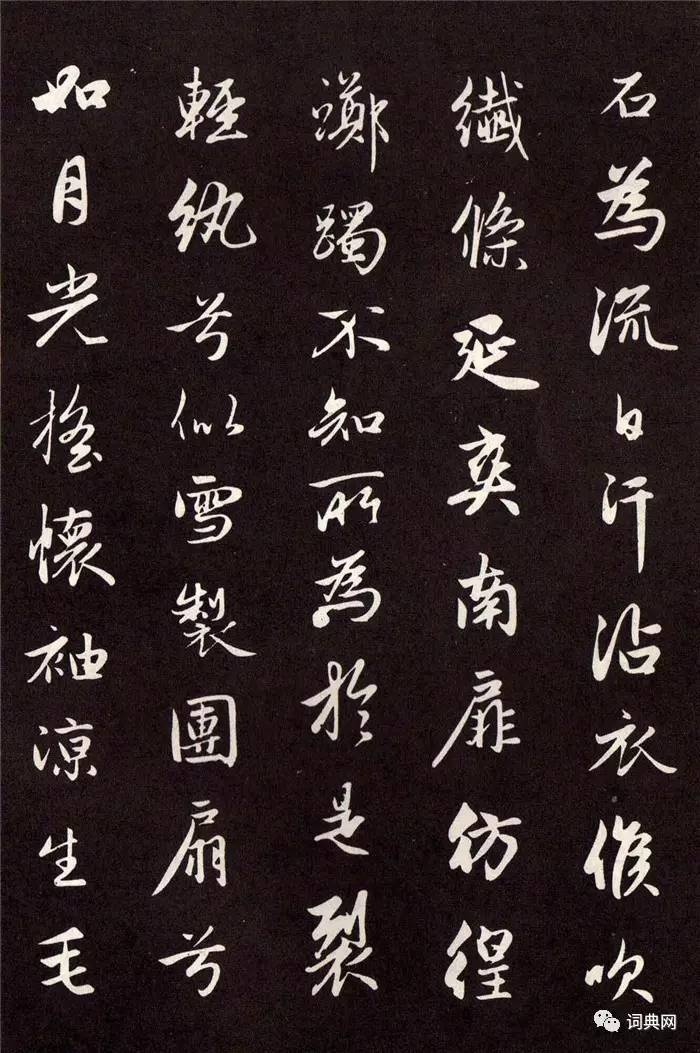 石為流白汗沾衣候吹
纖條延爽南扉彷徨
躑躅不知所為於是裂
輕紈兮似雪製團扇兮
如月光搖懷袖涼生毛
词典网